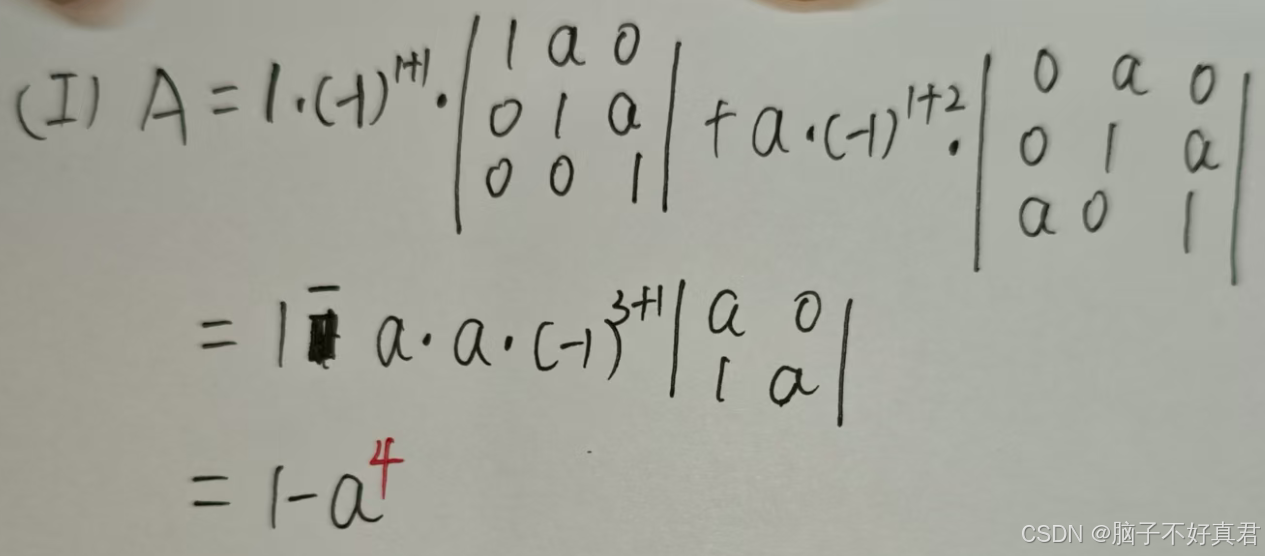 (I) A = 1·(-1)^{1+1}·| 1 a 0 ; 0 1 a ; 0 0 1 | + a·(-1)^{1+2}·| 0 a 0 ; 0 1 a ; a 0 1 |
= 1 - a·a·(-1)^{3+1} | a 0 ; 1 a |
= 1-a^4
CSDN @脑子不好真君